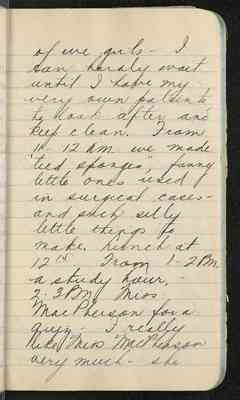 of we girls - I
can hardly wait
until I have my
very own patients
to look after and
keep clean. From
11-12 AM we made
"tied sponges", funny
little ones used
in surgical cases -
and such silly
little things to
make. Lunch at
12 15 From 1-2 PM
a study hour. -
2-3 PM Miss
MacPherson for a
quiz - I really
like Miss McPherson
very much - she